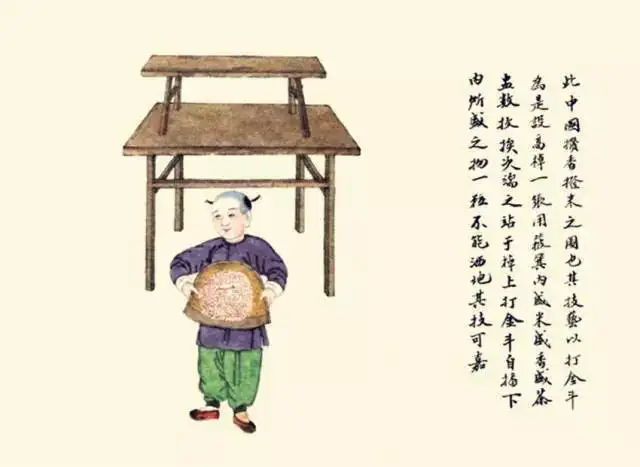 此中國香撥米之圖也其技藝以打金斗
為是設高棹一張用簸箕内盛米盛香盛茶
盅數枚挨次端之站于棹上打金斗自下
内所盛之物一粒不能洒地其技可嘉